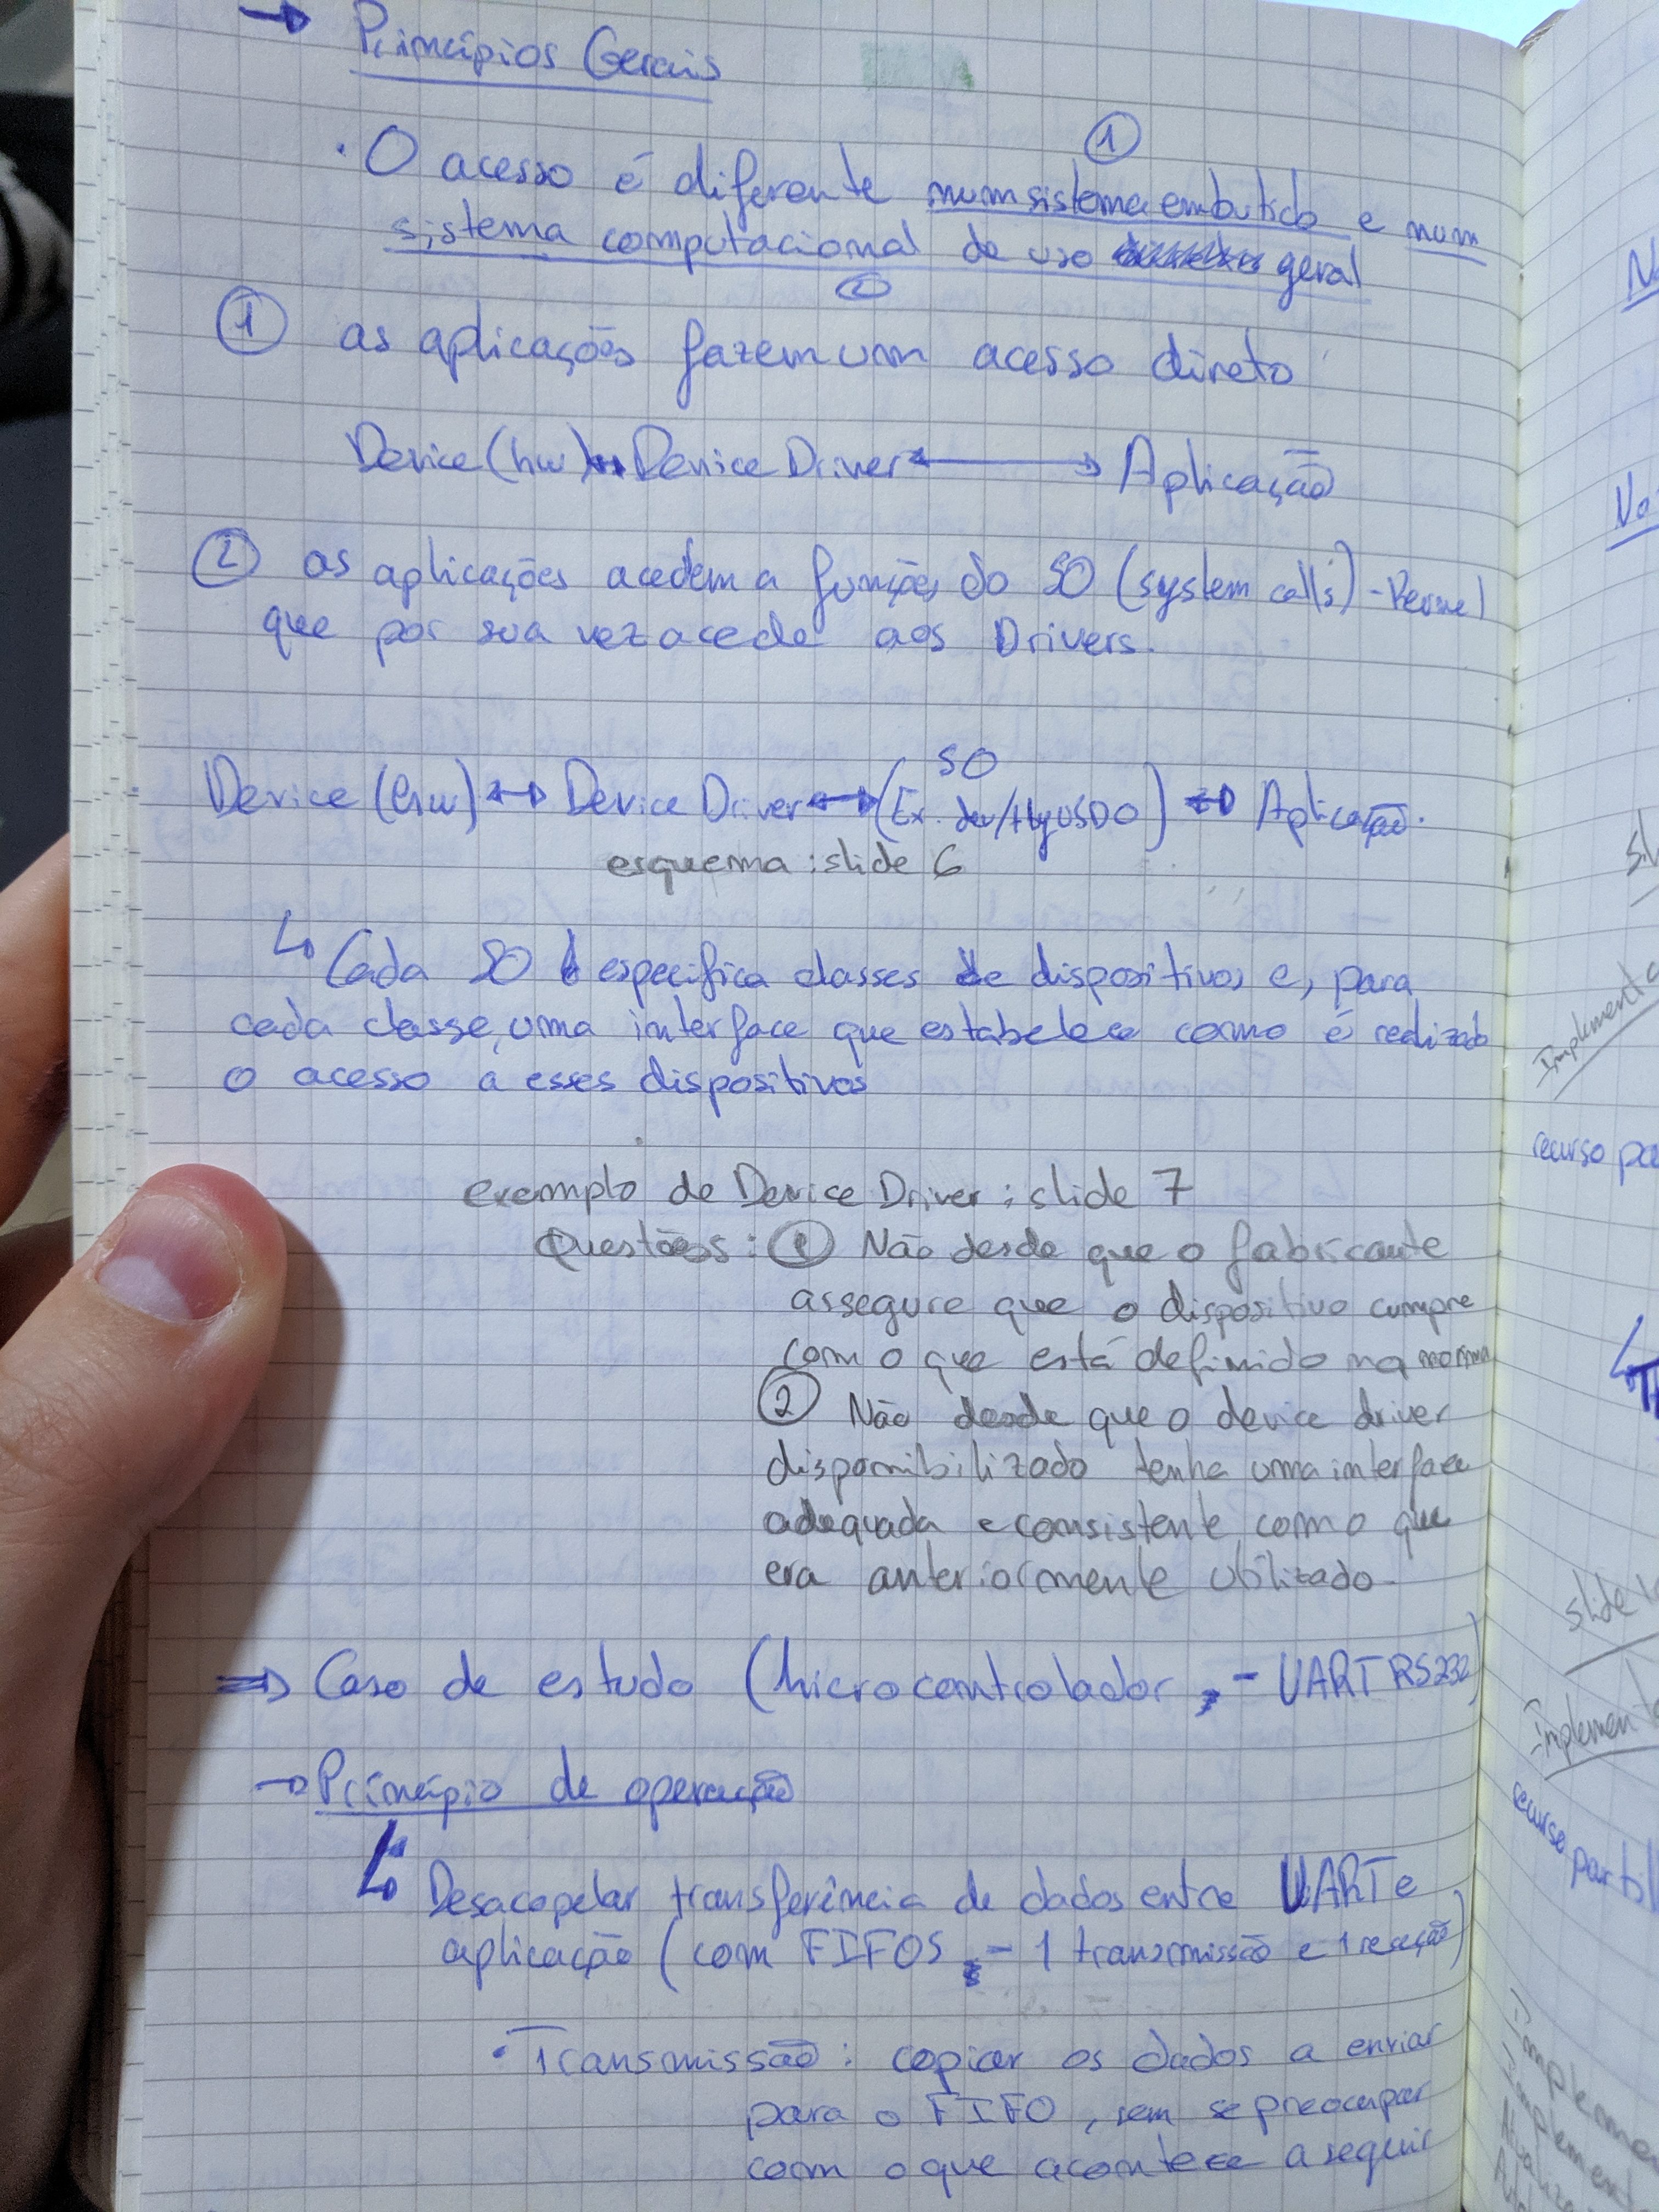 → Princípios Gerais
①
· O acesso é diferente num sistema embutido e num
sistema computacional de uso geral
②
① as aplicações fazem um acesso direto
Device (hw) ↔ Device Driver ↔ Aplicação
② as aplicações acedem a funções do SO (system calls) - Kernel
que por sua vez acede aos Drivers.
SO
Device (hw) ↔ Device Driver ↔ (Ex. dev/ttyUSB0) ↔ Aplicação.
esquema : slide 6
↳ Cada SO especifica classes de dispositivos e, para
cada classe, uma interface que estabelece como é realizado
o acesso a esses dispositivos
exemplo de Device Driver : slide 7
Questões : ① Não desde que o fabricante
assegure que o dispositivo cumpre
com o que está definido na norma
② Não desde que o device driver
disponibilizado tenha uma interface
adequada e consistente com o que
era anteriormente utilizado.
⇒ Caso de estudo (Microcontrolador - UART RS232)
→ Princípio de operação
↳ Desacopelar transferência de dados entre UART e
aplicação (com FIFOS - 1 transmissão e 1 receção)
· Transmissão : copiar os dados a enviar
para o FIFO, sem se preocupar
com o que acontece a seguir
No
No
sl
Implementa
recurso pa
↳
slide 1
Implementa
recurso partil
Impleme
Implement